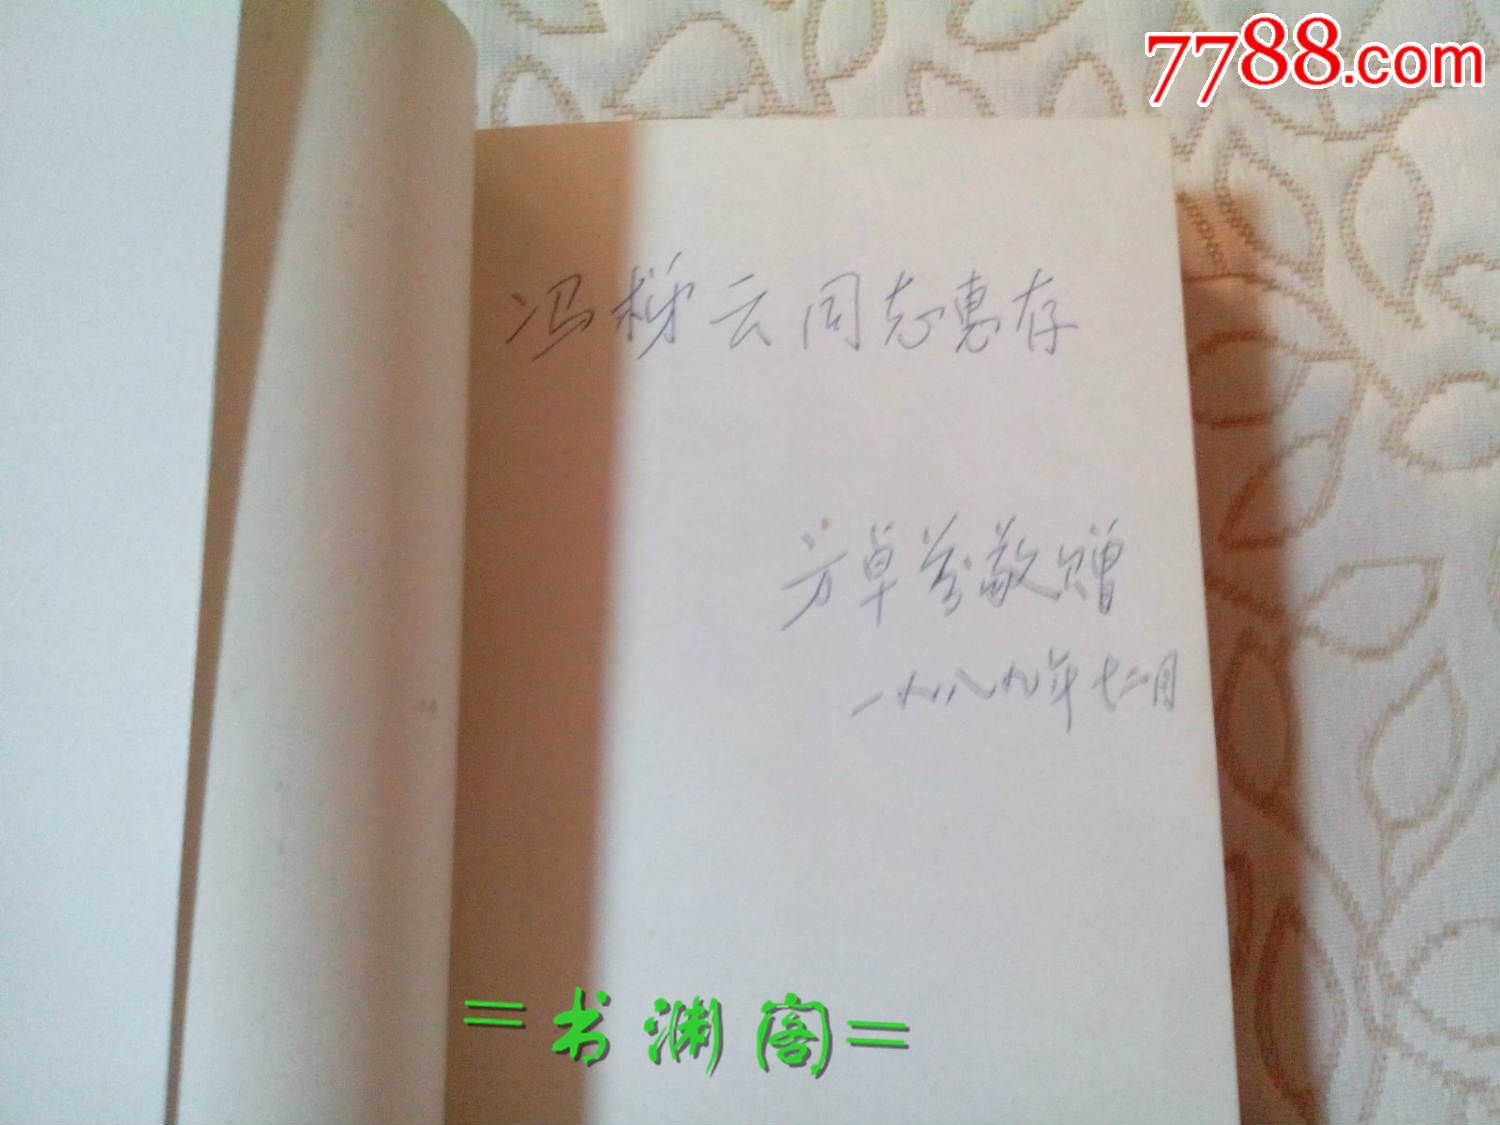 7788.com
冯梯云同志惠存
方卓芬敬赠
一九八九年十二月
=书渊阁=